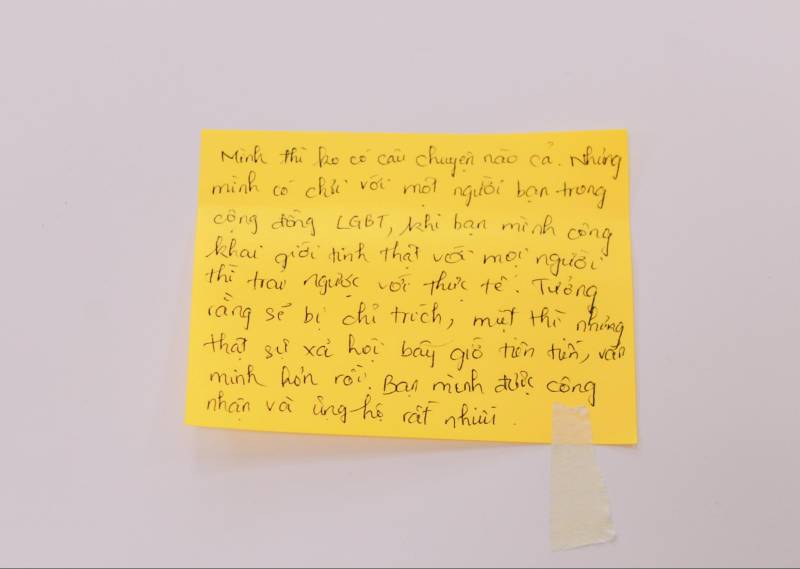 Mình thì ko có câu chuyện nào cả. Nhưng
mình có chơi với một người bạn trong
cộng đồng LGBT, khi bạn mình công
khai giới tính thật với mọi người
thì trái ngược với thực tế. Tưởng
rằng sẽ bị chỉ trích, miệt thị nhưng
thật sự xã hội bây giờ tiên tiến, văn
minh hơn rồi. Bạn mình được công
nhận và ủng hộ rất nhiều.